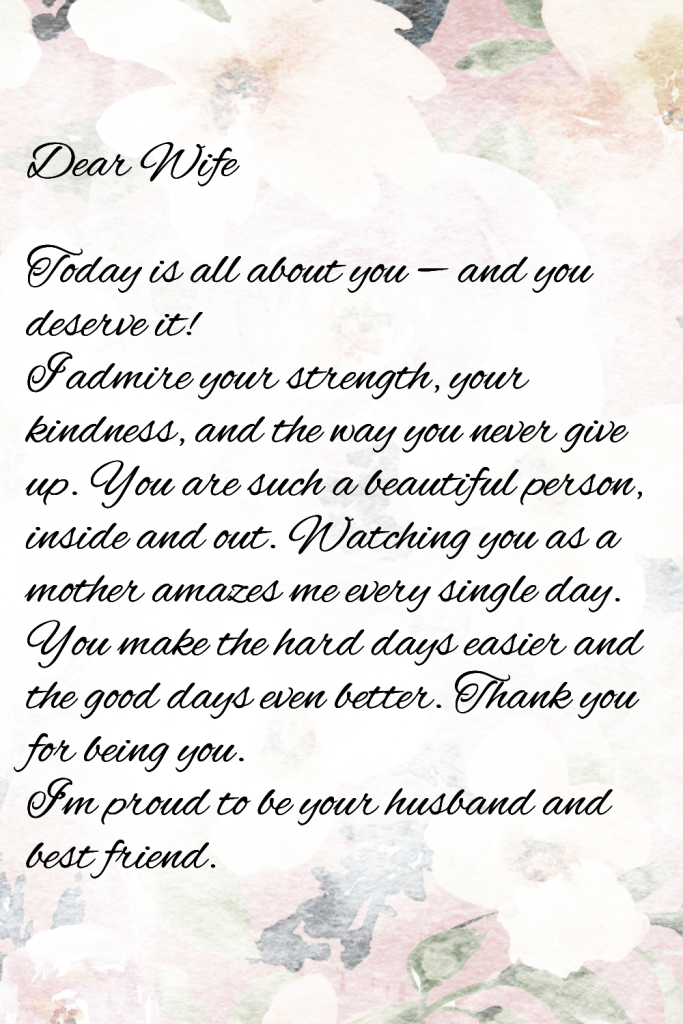 Dear Wife
Today is all about you – and you
deserve it!
I admire your strength, your
kindness, and the way you never give
up. You are such a beautiful person,
inside and out. Watching you as a
mother amazes me every single day.
You make the hard days easier and
the good days even better. Thank you
for being you.
I'm proud to be your husband and
best friend.